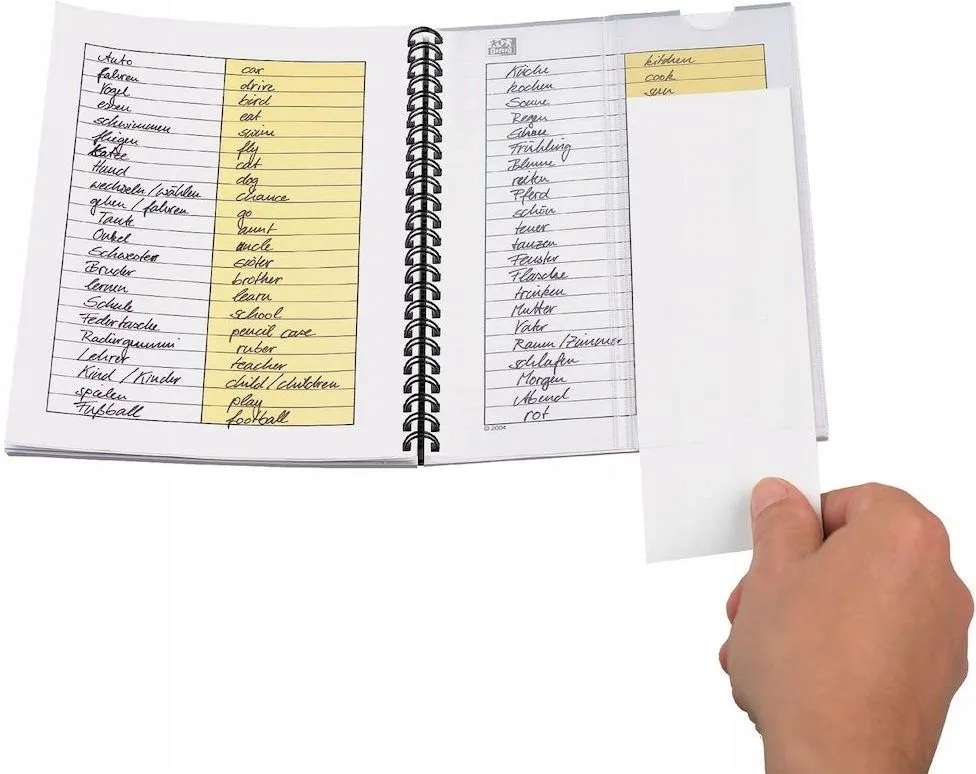 Auto car
fahren drive
Vogel bird
essen eat
schwimmen swim
fliegen fly
Katze cat
Hund dog
wechseln / wählen chance
gehen / fahren go
Tante aunt
Onkel uncle
Schwester sister
Bruder brother
lernen learn
Schule school
Federtasche pencil case
Radiergummi ruber
Lehrer teacher
Kind / Kinder child / children
spielen play
Fußball football
Oxford
Küche kitchen
kochen cook
Sonne sun
Regen
Schnee
Frühling
Blume
reiten
Pferd
schön
teuer
tanzen
Fenster
Flasche
trinken
Mutter
Vater
Raum / Zimmer
schlafen
Morgen
Abend
rot
© 2004